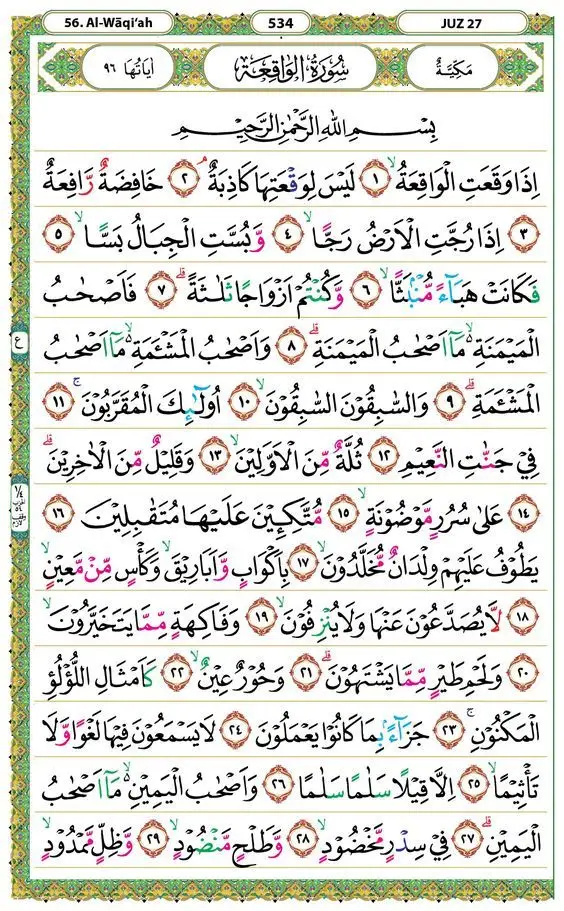 56. Al-Wāqi‘ah 534 JUZ 27
مَكِّيَّةٌ سُورَةُ الْوَاقِعَةِ اٰيَاتُهَا ٩٦
بِسْمِ اللّٰهِ الرَّحْمٰنِ الرَّحِيْمِ
اِذَا وَقَعَتِ الْوَاقِعَةُۙ ١ لَيْسَ لِوَقْعَتِهَا كَاذِبَةٌۘ ٢ خَافِضَةٌ رَّافِعَةٌ
٣ اِذَا رُجَّتِ الْاَرْضُ رَجًّاۙ ٤ وَّبُسَّتِ الْجِبَالُ بَسًّاۙ ٥
فَكَانَتْ هَبَاۤءً مُّنْۢبَثًّاۙ ٦ وَّكُنْتُمْ اَزْوَاجًا ثَلٰثَةًۗ ٧ فَاَصْحٰبُ
الْمَيْمَنَةِ ەۙ مَآ اَصْحٰبُ الْمَيْمَنَةِۗ ٨ وَاَصْحٰبُ الْمَشْـَٔمَةِ ەۙ مَآ اَصْحٰبُ
الْمَشْـَٔمَةِۗ ٩ وَالسّٰبِقُوْنَ السّٰبِقُوْنَۙ ١٠ اُولٰۤىِٕكَ الْمُقَرَّبُوْنَۚ ١١
فِيْ جَنّٰتِ النَّعِيْمِ ١٢ ثُلَّةٌ مِّنَ الْاَوَّلِيْنَۙ ١٣ وَقَلِيْلٌ مِّنَ الْاٰخِرِيْنَۗ
١٤ عَلٰى سُرُرٍ مَّوْضُوْنَةٍۙ ١٥ مُّتَّكِـِٕيْنَ عَلَيْهَا مُتَقٰبِلِيْنَ ١٦
يَطُوْفُ عَلَيْهِمْ وِلْدَانٌ مُّخَلَّدُوْنَۙ ١٧ بِاَكْوَابٍ وَّاَبَارِيْقَۙ وَكَأْسٍ مِّنْ مَّعِيْنٍۙ
١٨ لَّا يُصَدَّعُوْنَ عَنْهَا وَلَا يُنْزِفُوْنَۙ ١٩ وَفَاكِهَةٍ مِّمَّا يَتَخَيَّرُوْنَۙ
٢٠ وَلَحْمِ طَيْرٍ مِّمَّا يَشْتَهُوْنَۗ ٢١ وَحُوْرٌ عِيْنٌۙ ٢٢ كَاَمْثَالِ اللُّؤْلُؤِ
الْمَكْنُوْنِۚ ٢٣ جَزَاۤءًۢ بِمَا كَانُوْا يَعْمَلُوْنَ ٢٤ لَا يَسْمَعُوْنَ فِيْهَا لَغْوًا وَّلَا
تَأْثِيْمًاۙ ٢٥ اِلَّا قِيْلًا سَلٰمًا سَلٰمًا ٢٦ وَاَصْحٰبُ الْيَمِيْنِ ەۙ مَآ اَصْحٰبُ
الْيَمِيْنِۗ ٢٧ فِيْ سِدْرٍ مَّخْضُوْدٍۙ ٢٨ وَّطَلْحٍ مَّنْضُوْدٍۙ ٢٩ وَّظِلٍّ مَّمْدُوْدٍۙ
ع